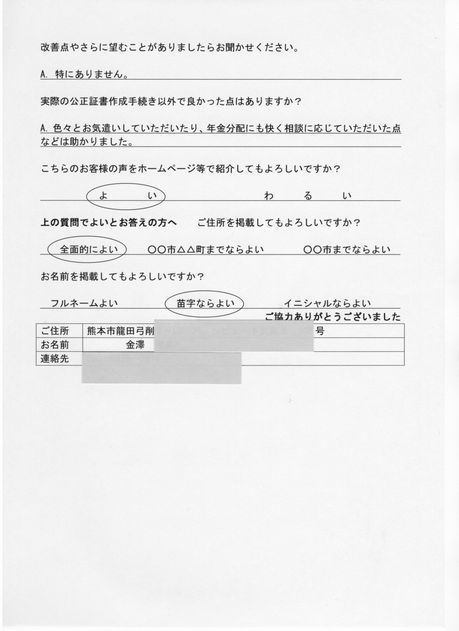 改善点やさらに望むことがありましたらお聞かせください。
A. 特にありません。
実際の公正証書作成手続き以外で良かった点はありますか？
A. 色々とお気遣いしていただいたり、年金分配にも快く相談に応じていただいた点
などは助かりました。
こちらのお客様の声をホームページ等で紹介してもよろしいですか？
よ い わ る い
上の質問でよいとお答えの方へ ご住所を掲載してもよろしいですか？
全面的によい 〇〇市△△町までならよい 〇〇市までならよい
お名前を掲載してもよろしいですか？
フルネームよい 苗字ならよい イニシャルならよい
ご協力ありがとうございました
ご住所 熊本市龍田弓削 号
お名前 金澤
連絡先